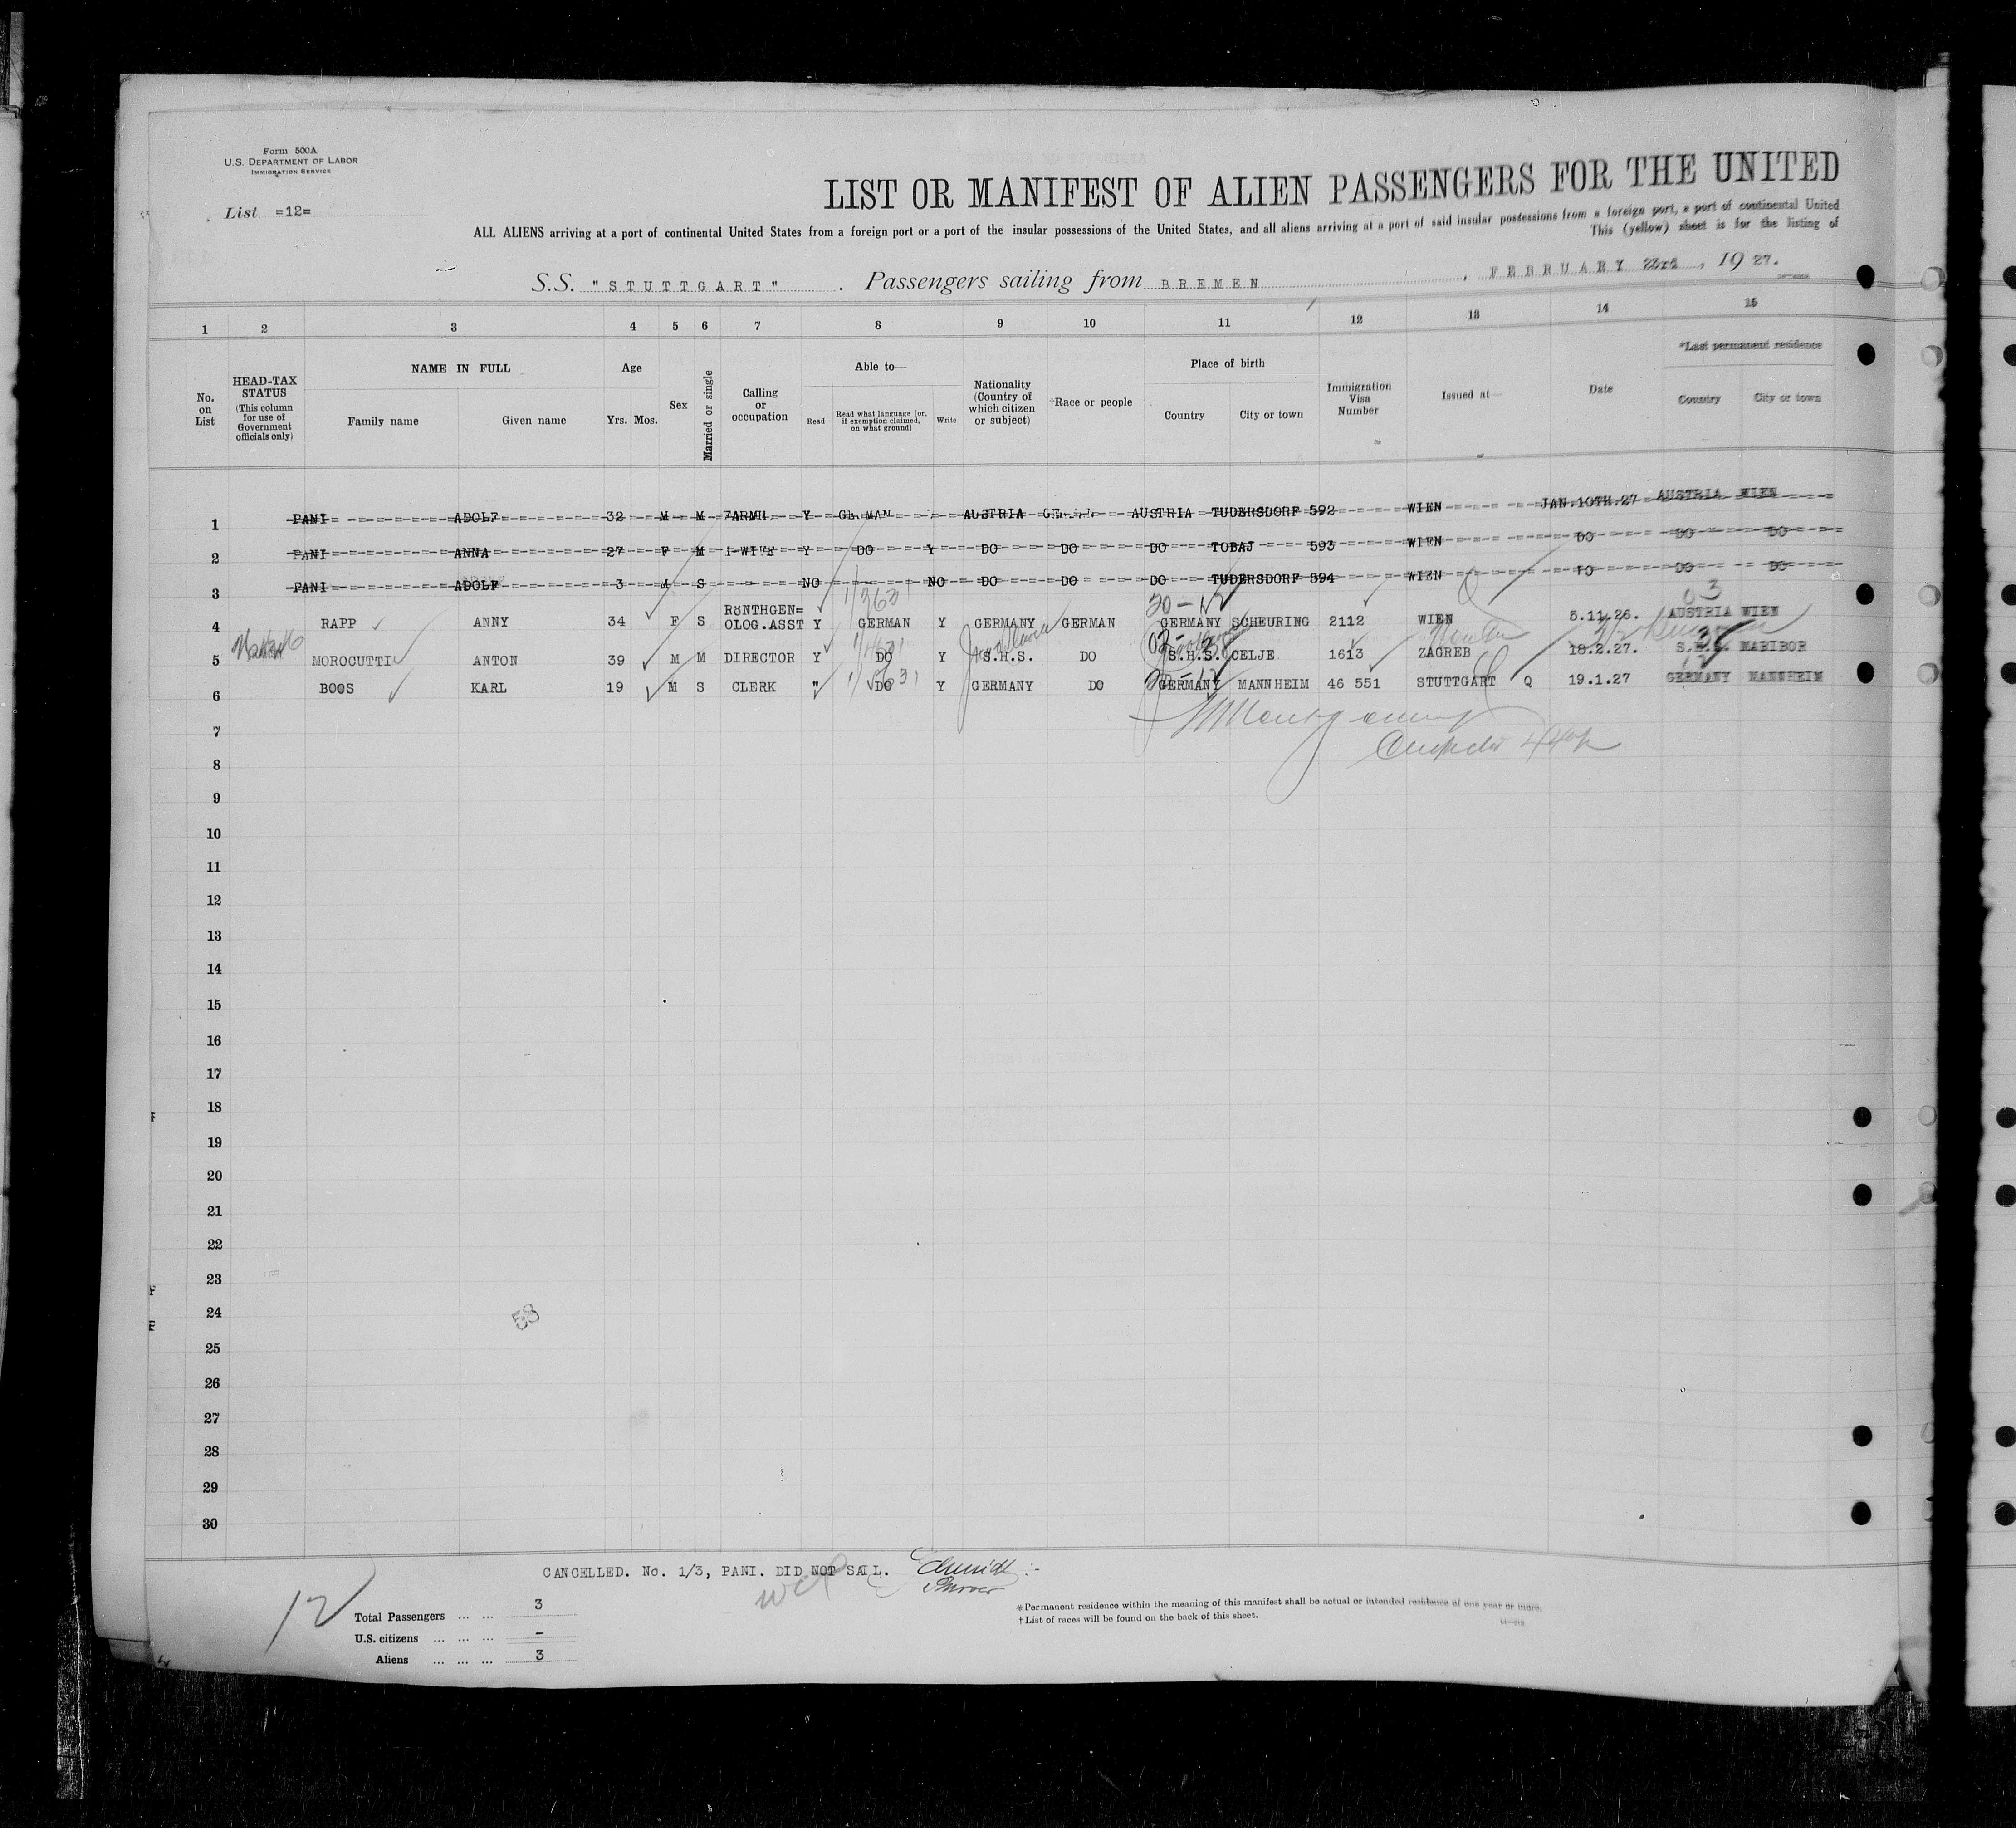 Form 500A
U.S. DEPARTMENT OF LABOR
IMMIGRATION SERVICE
List =12=
LIST OR MANIFEST OF ALIEN PASSENGERS FOR THE UNITED
ALL ALIENS arriving at a port of continental United States from a foreign port or a port of the insular possessions of the United States, and all aliens arriving at a port of said insular possessions from a foreign port, a port of continental United
This (yellow) sheet is for the listing of
S.S. "STUTTGART" . Passengers sailing from BREMEN , FEBRUARY 23rd , 19 27.
1 2 3 4 5 6 7 8 9 10 11 12 13 14 15
No. on List
HEAD-TAX STATUS
(This column for use of Government officials only)
NAME IN FULL
Family name Given name
Age
Yrs. Mos.
Sex
Married or single
Calling or occupation
Able to—
Read
Read what language [or, if exemption claimed, on what ground]
Write
Nationality (Country of which citizen or subject)
†Race or people
Place of birth
Country City or town
Immigration Visa Number
Issued at—
Date
*Last permanent residence
Country City or town
1 PANI ADOLF 32 M M FARMH Y GERMAN AUSTRIA AUSTRIA TUDERSDORF 592 WIEN JAN.10TH.27 AUSTRIA WIEN
2 PANI ANNA 27 F M WIFE Y DO Y DO DO DO TOBAJ 593 WIEN DO DO DO
3 PANI ADOLF 3 S NO NO DO DO DO TUDERSDORF 594 WIEN DO DO DO
1/363 20-12 03
4 RAPP ANNY 34 F S RöNTHGEN= OLOG.ASST Y GERMAN Y GERMANY GERMAN GERMANY SCHEURING 2112 WIEN 5.11.26. AUSTRIA WIEN
5 MOROCUTTI ANTON 39 M M DIRECTOR Y DO Y S.H.S. DO S.H.S. CELJE 1613 ZAGREB 18.2.27. S.H.S. MARIBOR
6 BOOS KARL 19 M S CLERK " DO Y GERMANY DO GERMANY MANNHEIM 46 551 STUTTGART Q 19.1.27 GERMANY MANNHEIM
7
8
9
10
11
12
13
14
15
16
17
18
19
20
21
22
23
24
58
25
26
27
28
29
30
CANCELLED. No. 1/3, PANI. DID NOT SAIL.
12
Total Passengers ... ... 3
U.S. citizens ... ... ... -
Aliens ... ... ... 3
*Permanent residence within the meaning of this manifest shall be actual or intended residence of one year or more.
†List of races will be found on the back of this sheet.